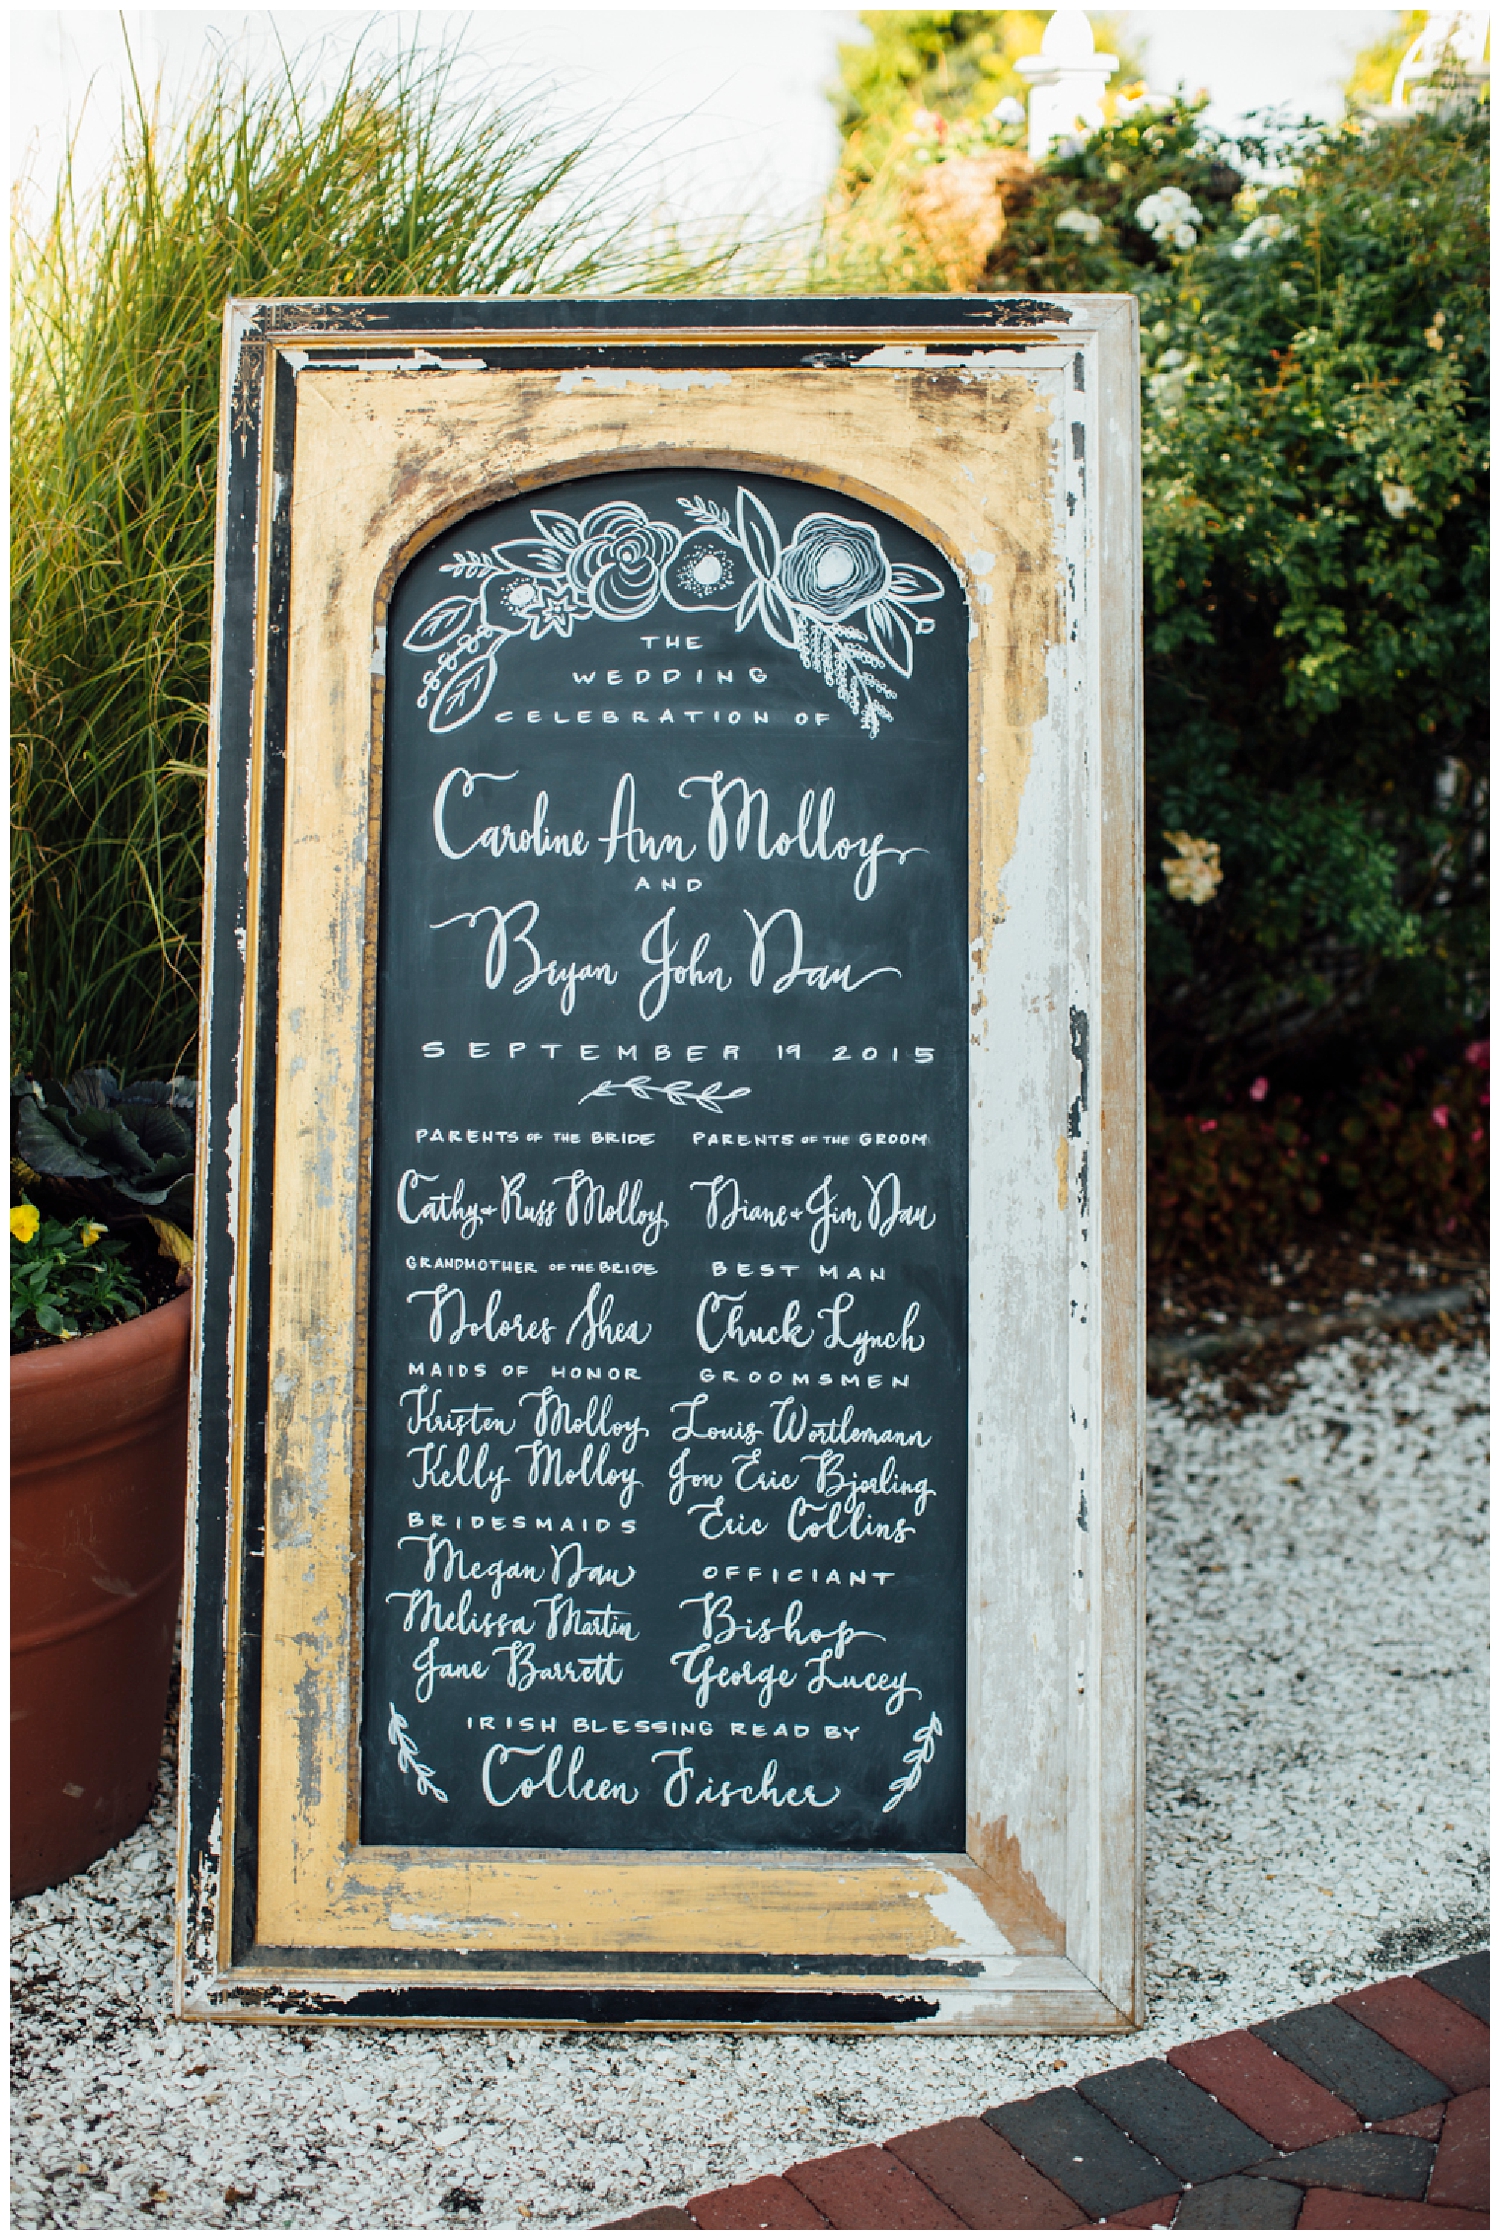 THE
WEDDING
CELEBRATION OF
Caroline Ann Molloy
AND
Bryan John Dau
SEPTEMBER 19 2015
PARENTS OF THE BRIDE
Cathy + Russ Molloy
GRANDMOTHER OF THE BRIDE
Dolores Shea
MAIDS OF HONOR
Kristen Molloy
Kelly Molloy
BRIDESMAIDS
Megan Dau
Melissa Martin
Jane Barrett
PARENTS OF THE GROOM
Diane + Jim Dau
BEST MAN
Chuck Lynch
GROOMSMEN
Louis Wortlemann
Jon Eric Bjorling
Eric Collins
OFFICIANT
Bishop
George Lucey
IRISH BLESSING READ BY
Colleen Fischer